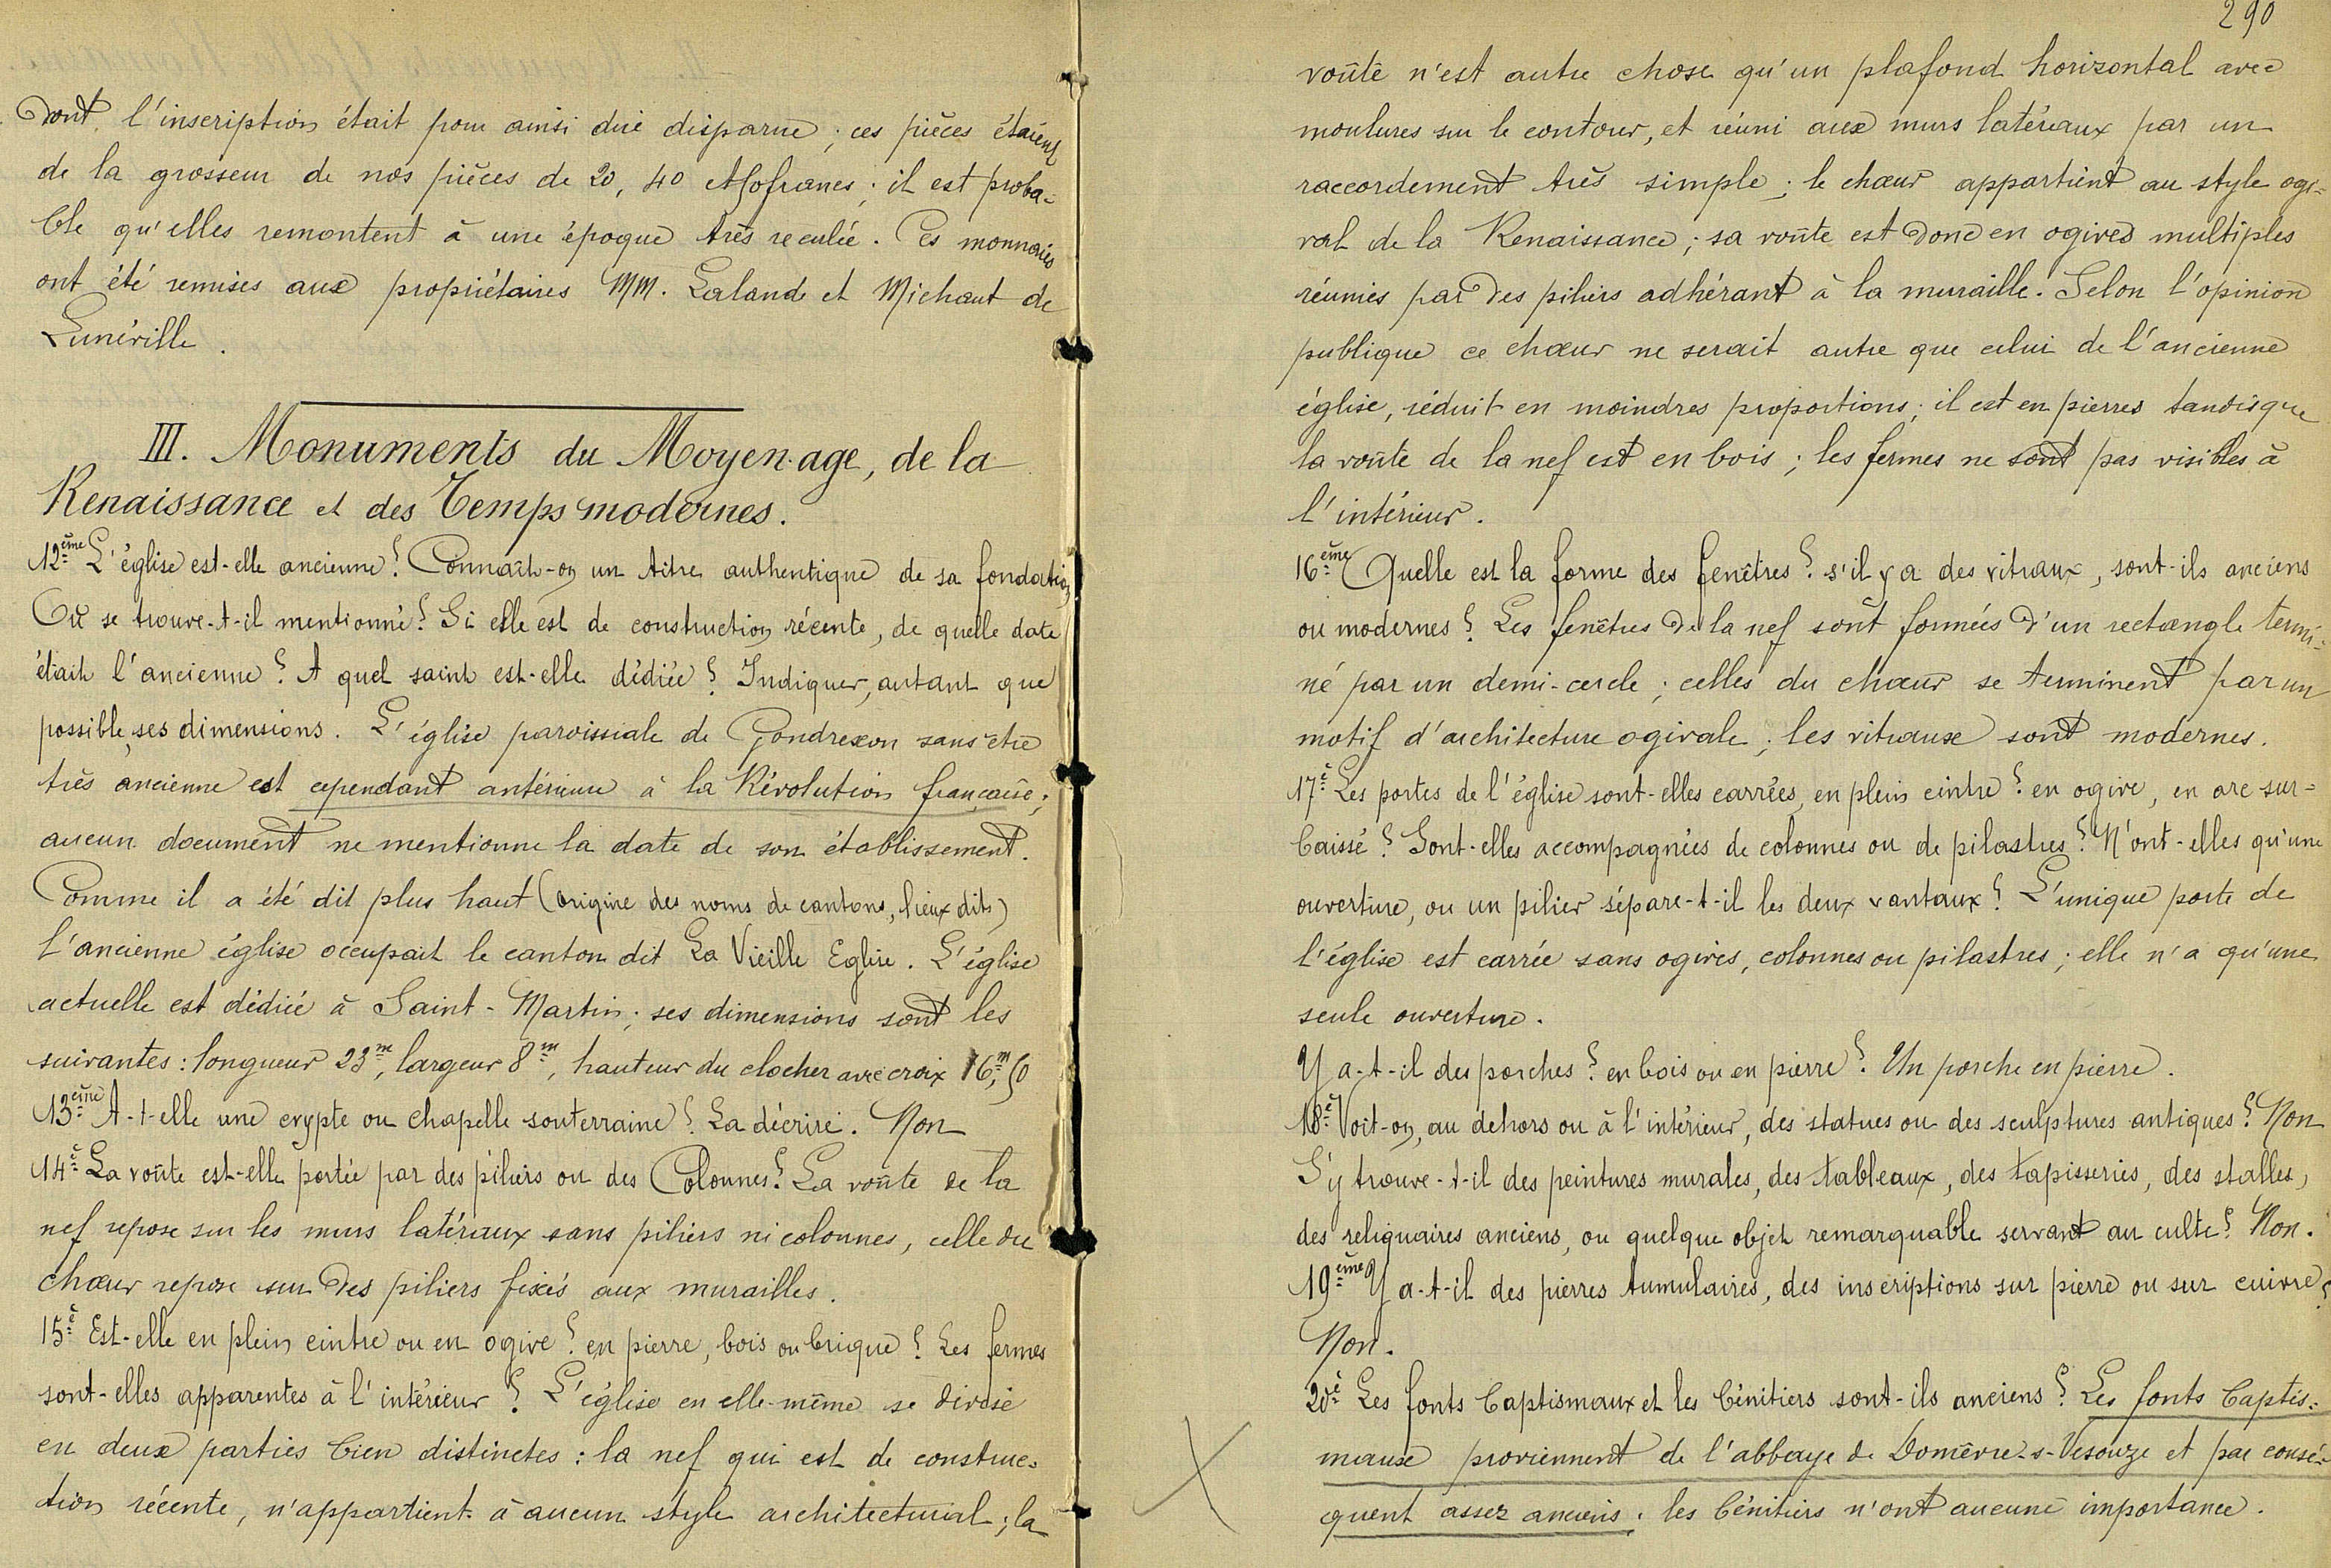 dont l'inscription était pour ainsi dire disparue ; ces pièces étaient
de la grosseur de nos pièces de 20, 40 et 50 francs ; il est proba-
ble qu'elles remontent à une époque très reculée. Ces monnaies
ont été remises aux propriétaires MM. Lalande et Michaut de
Lunéville.
III. Monuments du Moyen-age, de la
Renaissance et des Temps modernes.
12ème L'église est-elle ancienne ? Connaît-on un titre authentique de sa fondation
Où se trouve-t-il mentionné ? Si elle est de construction récente, de quelle date
était l'ancienne ? A quel saint est-elle dédiée ? Indiquer, autant que
possible, ses dimensions. L'église paroissiale de Gondrexon sans être
très ancienne est cependant antérieure à la Révolution française ;
aucun document ne mentionne la date de son établissement.
Comme il a été dit plus haut (origine des noms de cantons, lieux dits)
l'ancienne église occupait le canton dit La Vieille Eglise. L'église
actuelle est dédiée à Saint-Martin ; ses dimensions sont les
suivantes : longueur 23m, largeur 8m, hauteur du clocher avec croix 16m,50
13ème A-t-elle une crypte ou chapelle souterraine ? La décrire. Non
14è La voûte est-elle portée par des piliers ou des Colonnes ? La voûte de la
nef repose sur les murs latéraux sans piliers ni colonnes, celle du
chœur repose sur des piliers fixés aux murailles.
15è Est-elle en plein cintre ou en ogive ? en pierre, bois ou brique ? Les fermes
sont-elles apparentes à l'intérieur ? L'église en elle-même se divise
en deux parties bien distinctes : la nef qui est de construc-
tion récente, n'appartient à aucun style architectural ; la
290
voûte n'est autre chose qu'un plafond horizontal avec
moulures sur le contour, et réuni aux murs latéraux par un
raccordement très simple ; le chœur appartient au style ogi-
val de la Renaissance ; sa voûte est donc en ogives multiples
réunies par des piliers adhérant à la muraille. Selon l'opinion
publique ce chœur ne serait autre que celui de l'ancienne
église, réduit en moindres proportions ; il est en pierres tandisque
la voûte de la nef est en bois ; les fermes ne sont pas visibles à
l'intérieur.
16ème Quelle est la forme des fenêtres ? s'il y a des vitraux, sont-ils anciens
ou modernes ? Les fenêtres de la nef sont formées d'un rectangle termi-
né par un demi-cercle ; celles du chœur se terminent par un
motif d'architecture ogivale ; les vitraux sont modernes.
17è Les portes de l'église sont-elles carrées, en plein cintre ? en ogive, en arc sur-
baissé ? Sont-elles accompagnées de colonnes ou de pilastres ? N'ont-elles qu'une
ouverture, ou un pilier sépare-t-il les deux vantaux ? L'unique porte de
l'église est carrée sans ogives, colonnes ou pilastres ; elle n'a qu'une
seule ouverture.
Y a-t-il des porches ? en bois ou en pierre ? Un porche en pierre.
18è Voit-on, au dehors ou à l'intérieur, des statues ou des sculptures antiques ? Non
S'y trouve-t-il des peintures murales, des tableaux, des tapisseries, des stalles,
des reliquaires anciens, ou quelque objet remarquable servant au culte ? Non.
19ème Y a-t-il des pierres tumulaires, des inscriptions sur pierre ou sur cuivre ?
Non.
20è Les fonts baptismaux et les bénitiers sont-ils anciens ? Les fonts baptis-
maux proviennent de l'abbaye de Domêvre-s-Vesouze et par consé-
quent assez anciens ; les bénitiers n'ont aucune importance.